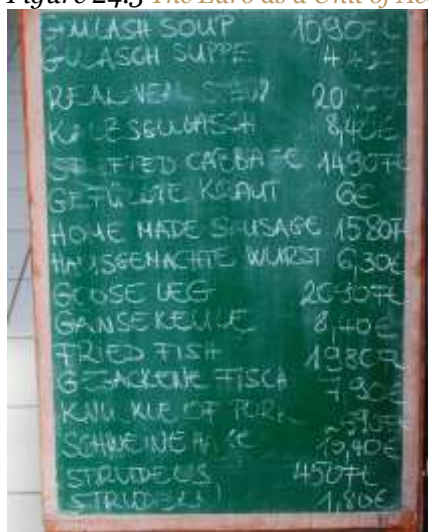 Figure 24.3 The Euro as a Unit of Acc
GULASH SOUP 1090Ft
GULASCH SUPPE
REAL VEAL STEW
KALBSGULASCH 8,40€
STUFFED CABBAGE 1490Ft
GEFÜLLTE KRAUT 6€
HOME MADE SAUSAGE 1580Ft
HAUSGEMACHTE WURST 6,30€
GOOSE LEG
GANSEKEULE 8,40€
FRIED FISH 1980Ft
GEBACKENE FISCH 7,90€
KNUCKLE OF PORK
10,40€
STRUDELS 450Ft
STRUDELS 1,80€